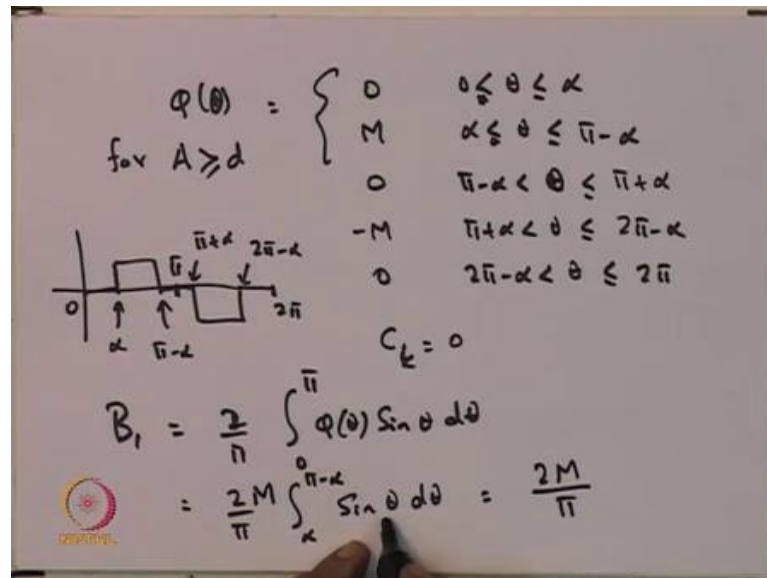 φ(θ) = { 0 0 ≤ θ ≤ α
for A ≥ d M α ≤ θ ≤ π-α
0 π-α < θ ≤ π+α
-M π+α < θ ≤ 2π-α
0 2π-α < θ ≤ 2π
π+α 2π-α
0 π 2π
α π-α
C_k = 0
B₁ = 2/π ∫₀^π φ(θ) Sin θ dθ
= 2M/π ∫_α^(π-α) Sin θ dθ = 2M/π
NPTEL